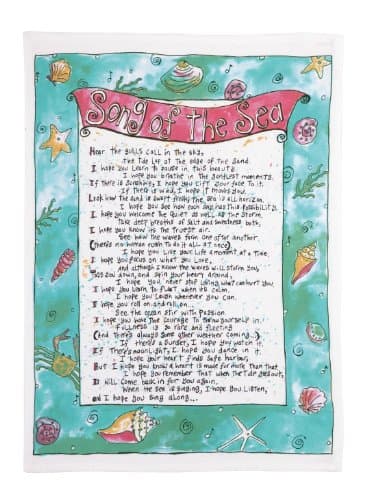 Song of the Sea
Hear the gulls call in the sky,
The Tide Lap at the edge of the sand.
I hope you learn to pause in this beauty
I hope you breathe in the sunlust moments.
If There is Sunshine, I hope you Lift your face To it.
If There is Wind, I hope it moves you.
Look how the sand is swept freely the sea is all horizon.
I hope you see how each day has This Possibility.
I hope you welcome The Quiet as well as the Storm,
Take deep breaths of Salt and sweetness both.
I hope you know its the Truest air.
See how The waves form one after another
(There's no human rush To do it all at once)
I hope you Live your Life a moment at a Time.
I hope you focus on what you Love,
and although I know The waves will storm you,
Toss you down, and spin your heart around,
I hope you never stop Living what can hurt you.
I hope you Learn to float when its calm,
I hope you Laugh wherever you can.
I hope you roll on and roll on...
See the ocean stir with Passion
I hope you have The courage To throw yourself in.
Fullness is so rare and fleeting
(and There's always some other weather coming...)
If There's a Sunset, I hope you watch it.
If There's moonlight, I hope you dance in it.
I hope your heart finds safe harbor,
But I hope you know a heart is made for more Than that
I hope you remember That when the Tide goes out,
It will Come back in for you again.
When the Sea is Singing, I hope you Listen,
and I hope you sing along...